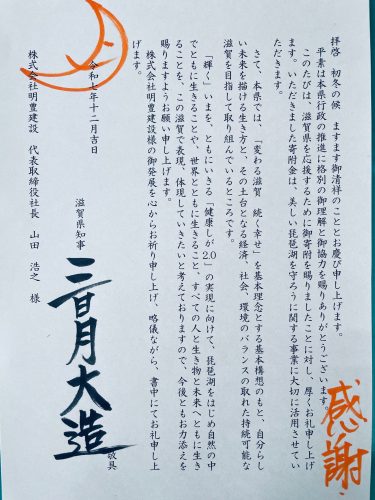 拝啓　初冬の候　ますます御清祥のこととお慶び申し上げます。
平素は本県行政の推進に格別の御理解と御協力を賜りありがとうございます。
このたびは、滋賀県を応援するために御寄附を賜りましたことに対し、厚くお礼申し上げ
ます。いただきました寄附金は、美しい琵琶湖を守ろうに関する事業に大切に活用させてい
ただきます。
さて、本県では、「変わる滋賀　続く幸せ」を基本理念とする基本構想のもと、自分らし
い未来を描ける生き方と、その土台となる経済、社会、環境のバランスの取れた持続可能な
滋賀を目指して取り組んでいるところです。
「輝く いまを、ともにいきる「健康しが2.0」の実現に向けて、琵琶湖をはじめ自然の中
でともに生きることや、世界とともに生きること、すべての人と生き物と未来へともに生き
ることを、この滋賀で表現、体現していきたいと考えておりますので、今後ともお力添えを
賜りますようお願い申し上げます。
株式会社明豊建設様の御発展を心からお祈り申し上げ、略儀ながら、書中にてお礼申し上
げます。
敬具
令和七年十二月吉日
滋賀県知事
三日月大造
株式会社明豊建設　代表取締役社長　山田　浩之　様
感謝